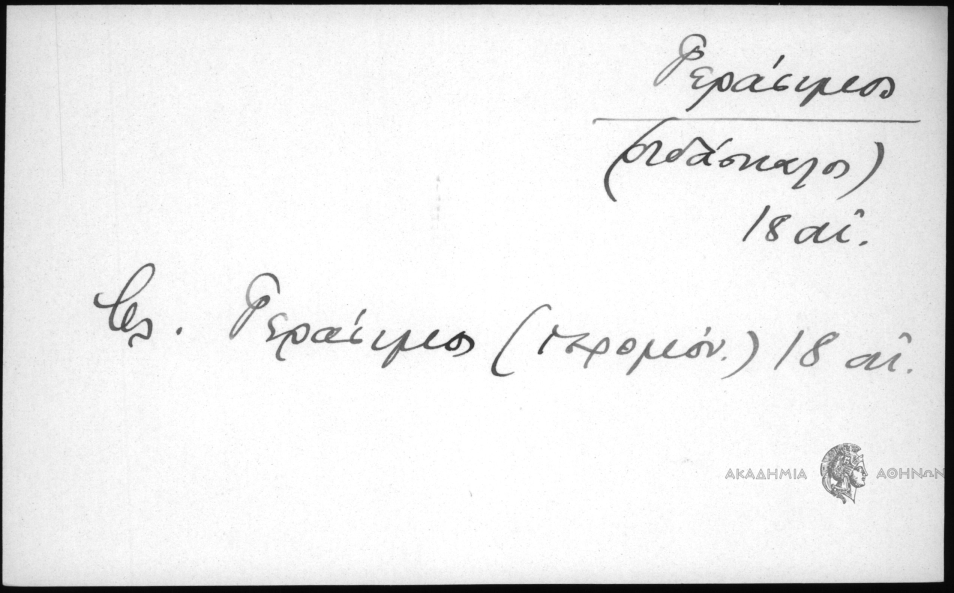 Γεράσιμος
(διδάσκαλος)
18 αἰ.
Βλ. Γεράσιμος (ἱερομόν.) 18 αἰ.
ΑΚΑΔΗΜΙΑ ΑΘΗΝΩΝ